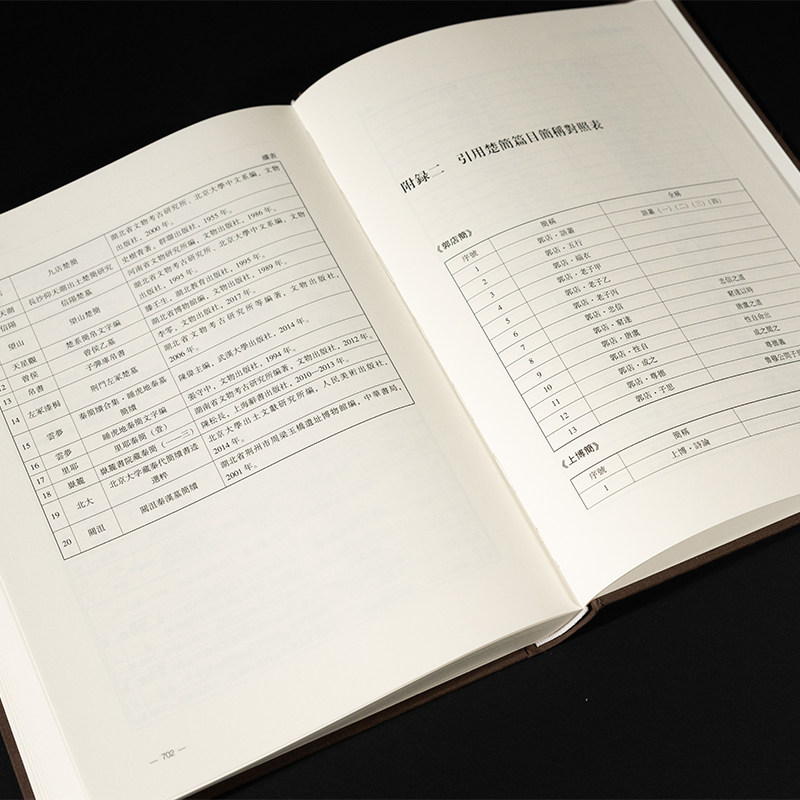 續表
湖北省文物考古研究所、北京大學中文系編，文物
九店楚簡
出版社，2000年。
天湖 長沙仰天湖出土楚簡研究 史樹青著，群聯出版社，1955年。
信陽 信陽楚墓 河南省文物研究所編，文物出版社，1986年。
湖北省文物考古研究所、北京大學中文系編，文物
望山 望山楚簡
出版社，1995年。
天星觀 楚系簡帛文字編 滕壬生，湖北教育出版社，1995年。
12 曾侯 曾侯乙墓 湖北省博物館編，文物出版社，1989年。
13 帛書 子彈庫帛書 李零，文物出版社，2017年。
湖北省文物考古研究所等編著，文物出版社，
14 左冢漆梮 荊門左冢楚墓
2006年。
秦簡牘合集·睡虎地秦墓
15 雲夢 陳偉主編，武漢大學出版社，2014年。
簡牘
16 雲夢 睡虎地秦簡文字編 張守中，文物出版社，1994年。
17 里耶 里耶秦簡（壹） 湖南省文物考古研究所編著，文物出版社，2012年。
18 嶽麓 嶽麓書院藏秦簡（一—三） 陳松長，上海辭書出版社，2010—2013年。
北京大學藏秦代簡牘書迹 北京大學出土文獻研究所編，人民美術出版社，
19 北大
選粹 2014年。
湖北省荊州市周梁玉橋遺址博物館編，中華書局，
20 關沮 關沮秦漢墓簡牘
2001年。
— 702 —
附録二 引用楚簡篇目簡稱對照表
《郭店簡》
序號 簡稱 全稱
1 郭店·語叢 語叢（一）（二）（三）（四）
2 郭店·五行
3 郭店·緇衣
4 郭店·老子甲
5 郭店·老子乙
6 郭店·老子丙
7 郭店·忠信 忠信之道
8 郭店·窮達 窮達以時
9 郭店·唐虞 唐虞之道
10 郭店·性自 性自命出
11 郭店·成之 成之聞之
12 郭店·尊德 尊德義
13 郭店·子思 魯穆公問子
《上博簡》
序號 簡稱
1 上博·詩論